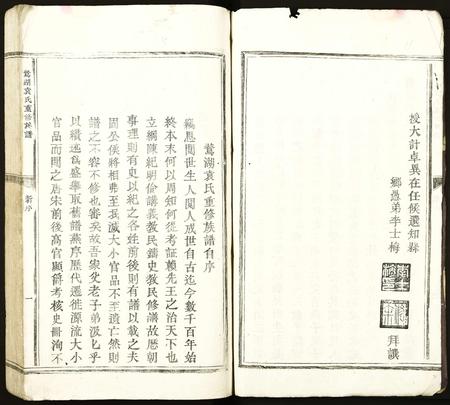 授大計卓異在任候選知縣
鄉愚弟李士梅
拜譔
鶯湖袁氏重修族譜自序
竊思閱世生人閱人成世自古迄今數千百年始
終本末何以周知何從考証賴先王之治天下也
立綱陳紀明倫講義教民鑄史教民修譜故歷朝
事理則有史以紀之各姓前後則有譜以載之夫
固公侯將相弗至泯滅大小官品不至遺亡然則
譜之不容不修也審矣故吾衆父老子弟汲匕乎
以續述爲盛舉取舊譜燕序歷代遷徙源流大小
官品而閱之唐宋前後高官顯爵考核史冊洵不
鶯湖袁氏重修族譜
新序
一